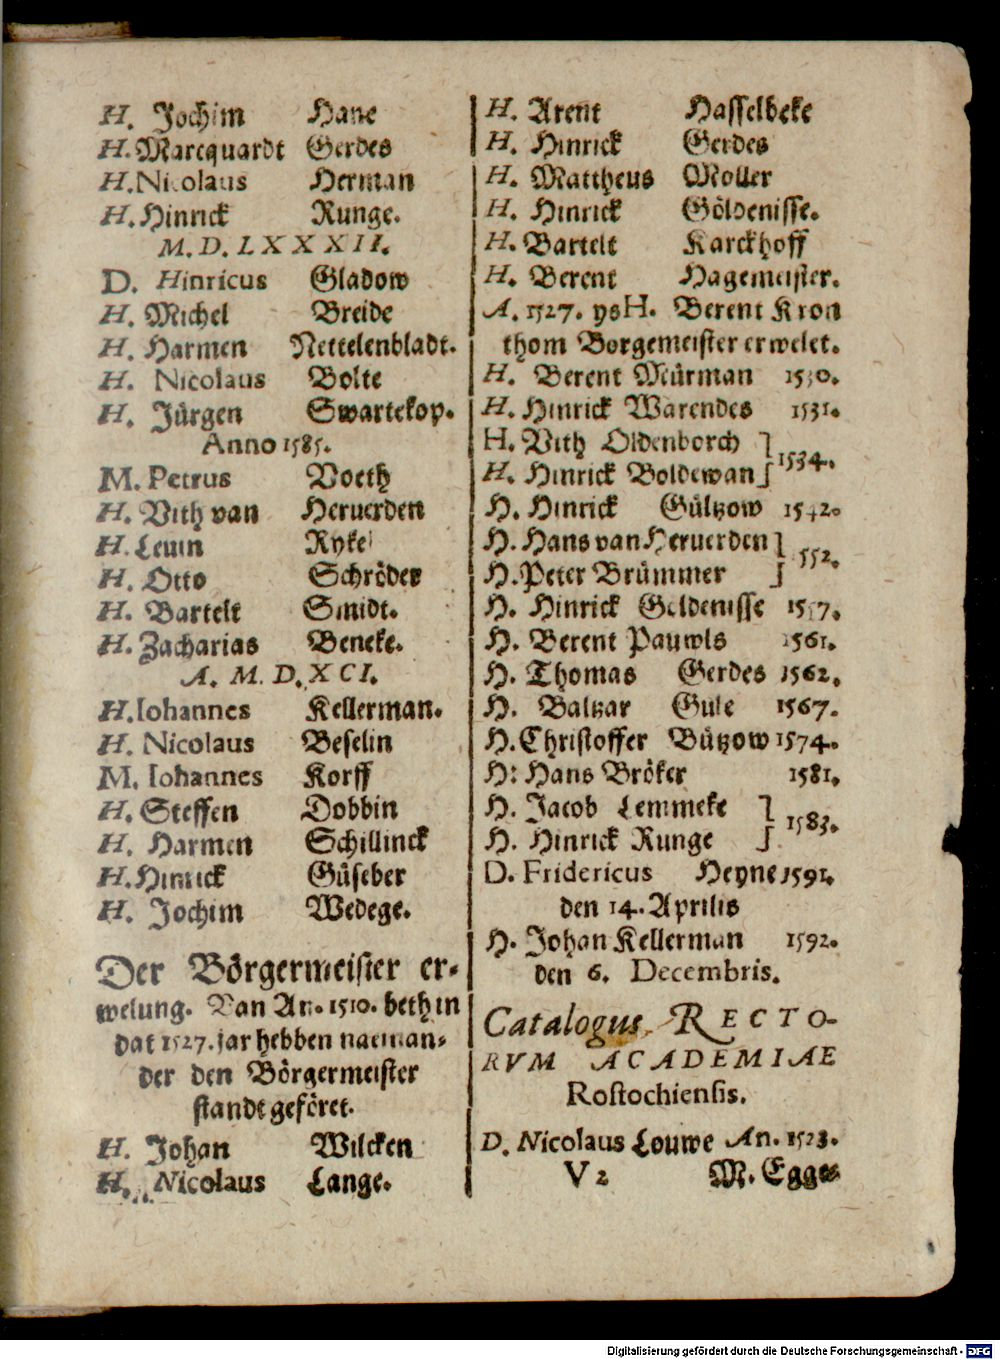 H. Jochim Hane
H. Marcquardt Gerdes
H. Nicolaus Herman
H. Hinrick Runge.
M. D. LXXXII.
D. Hinricus Gladow
H. Michel Breide
H. Harmen Nettelenbladt.
H. Nicolaus Bolte
H. Jürgen Swartekop.
Anno 1585.
M. Petrus Voeth
H. Vith van Heruerden
H. Leuin Ryke
H. Otto Schröder
H. Bartelt Smidt.
H. Zacharias Beneke.
A. M. D. XCI.
H. Iohannes Kellerman.
H. Nicolaus Beselin
M. Iohannes Korff
H. Steffen Dobbin
H. Harmen Schillinck
H. Hinrick Güseber
H. Jochim Wedege.
Der Börgermeister er-
welung. Van An. 1510. beth in
dat 1527. jar hebben naeman-
der den Börgermeister
standt geföret.
H. Johan Wilcken
H. Nicolaus Lange.
H. Arent Hasselbeke
H. Hinrick Gerdes
H. Mattheus Moller
H. Hinrick Göldenisse.
H. Bartelt Karckhoff
H. Berent Hagemeister.
A. 1527. ys H. Berent Kron
thom Borgemeister erwelet.
H. Berent Mürman 1530.
H. Hinrick Warendes 1531.
H. Vith Oldenborch
H. Hinrick Boldewan 1534.
H. Hinrick Gültzow 1542.
H. Hans van Heruerden
H. Peter Brümmer 552.
H. Hinrick Goldenisse 1557.
H. Berent Pauwls 1561.
H. Thomas Gerdes 1562.
H. Baltzar Gule 1567.
H. Christoffer Bützow 1574.
H: Hans Bröker 1581.
H. Jacob Lemmeke
H. Hinrick Runge 1583.
D. Fridericus Heyne 1591.
den 14. Aprilis
H. Johan Kellerman 1592.
den 6. Decembris.
Catalogus RECTO-
RVM ACADEMIAE
Rostochiensis.
D. Nicolaus Louwe An. 1523.
V 2 M. Egge
Digitalisierung gefördert durch die Deutsche Forschungsgemeinschaft - DFG